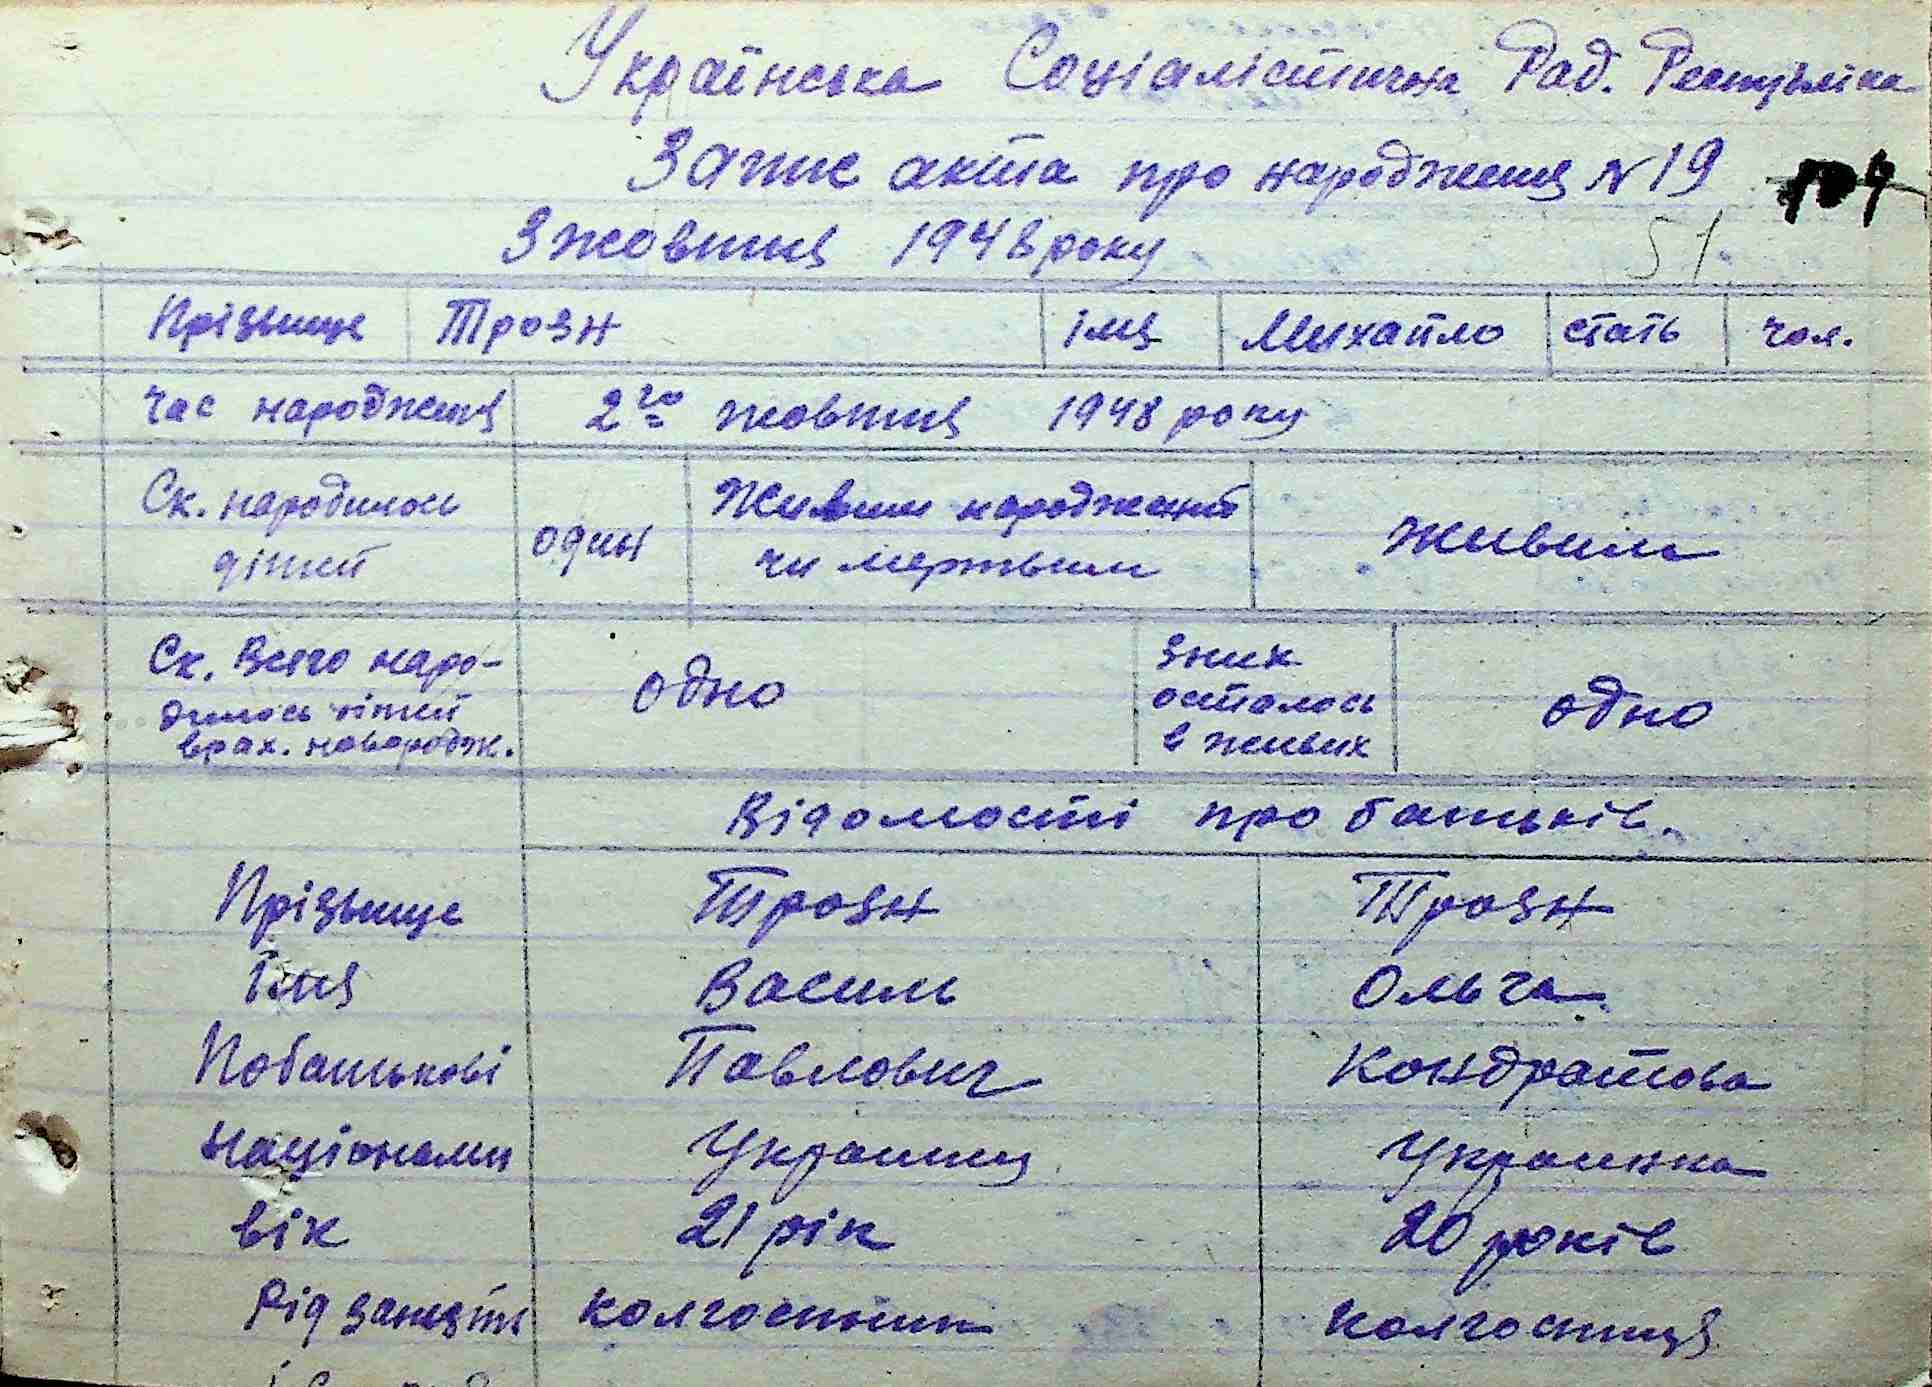 Українська Соціалістична Рад. Республіка
Запис акта про народження N 19
3 жовтня 1948 року
51
Прізвище Трозн імя Михайло стать чол.
час народження 2го жовтня 1948 року
Ск. народилось дітей один Живим народжений чи мертвим живим
Ск. Всего народилось дітей врах. новородж. одно Зних осталось в живих одно
Відомості про батьків.
Прізвище Трозн Трозн
Імя Василь Ольга
Побатькові Павлович Кондратова
Національ Украинец Украинка
вік 21 рік 20 років
Рід занять колгоспник колгоспниця